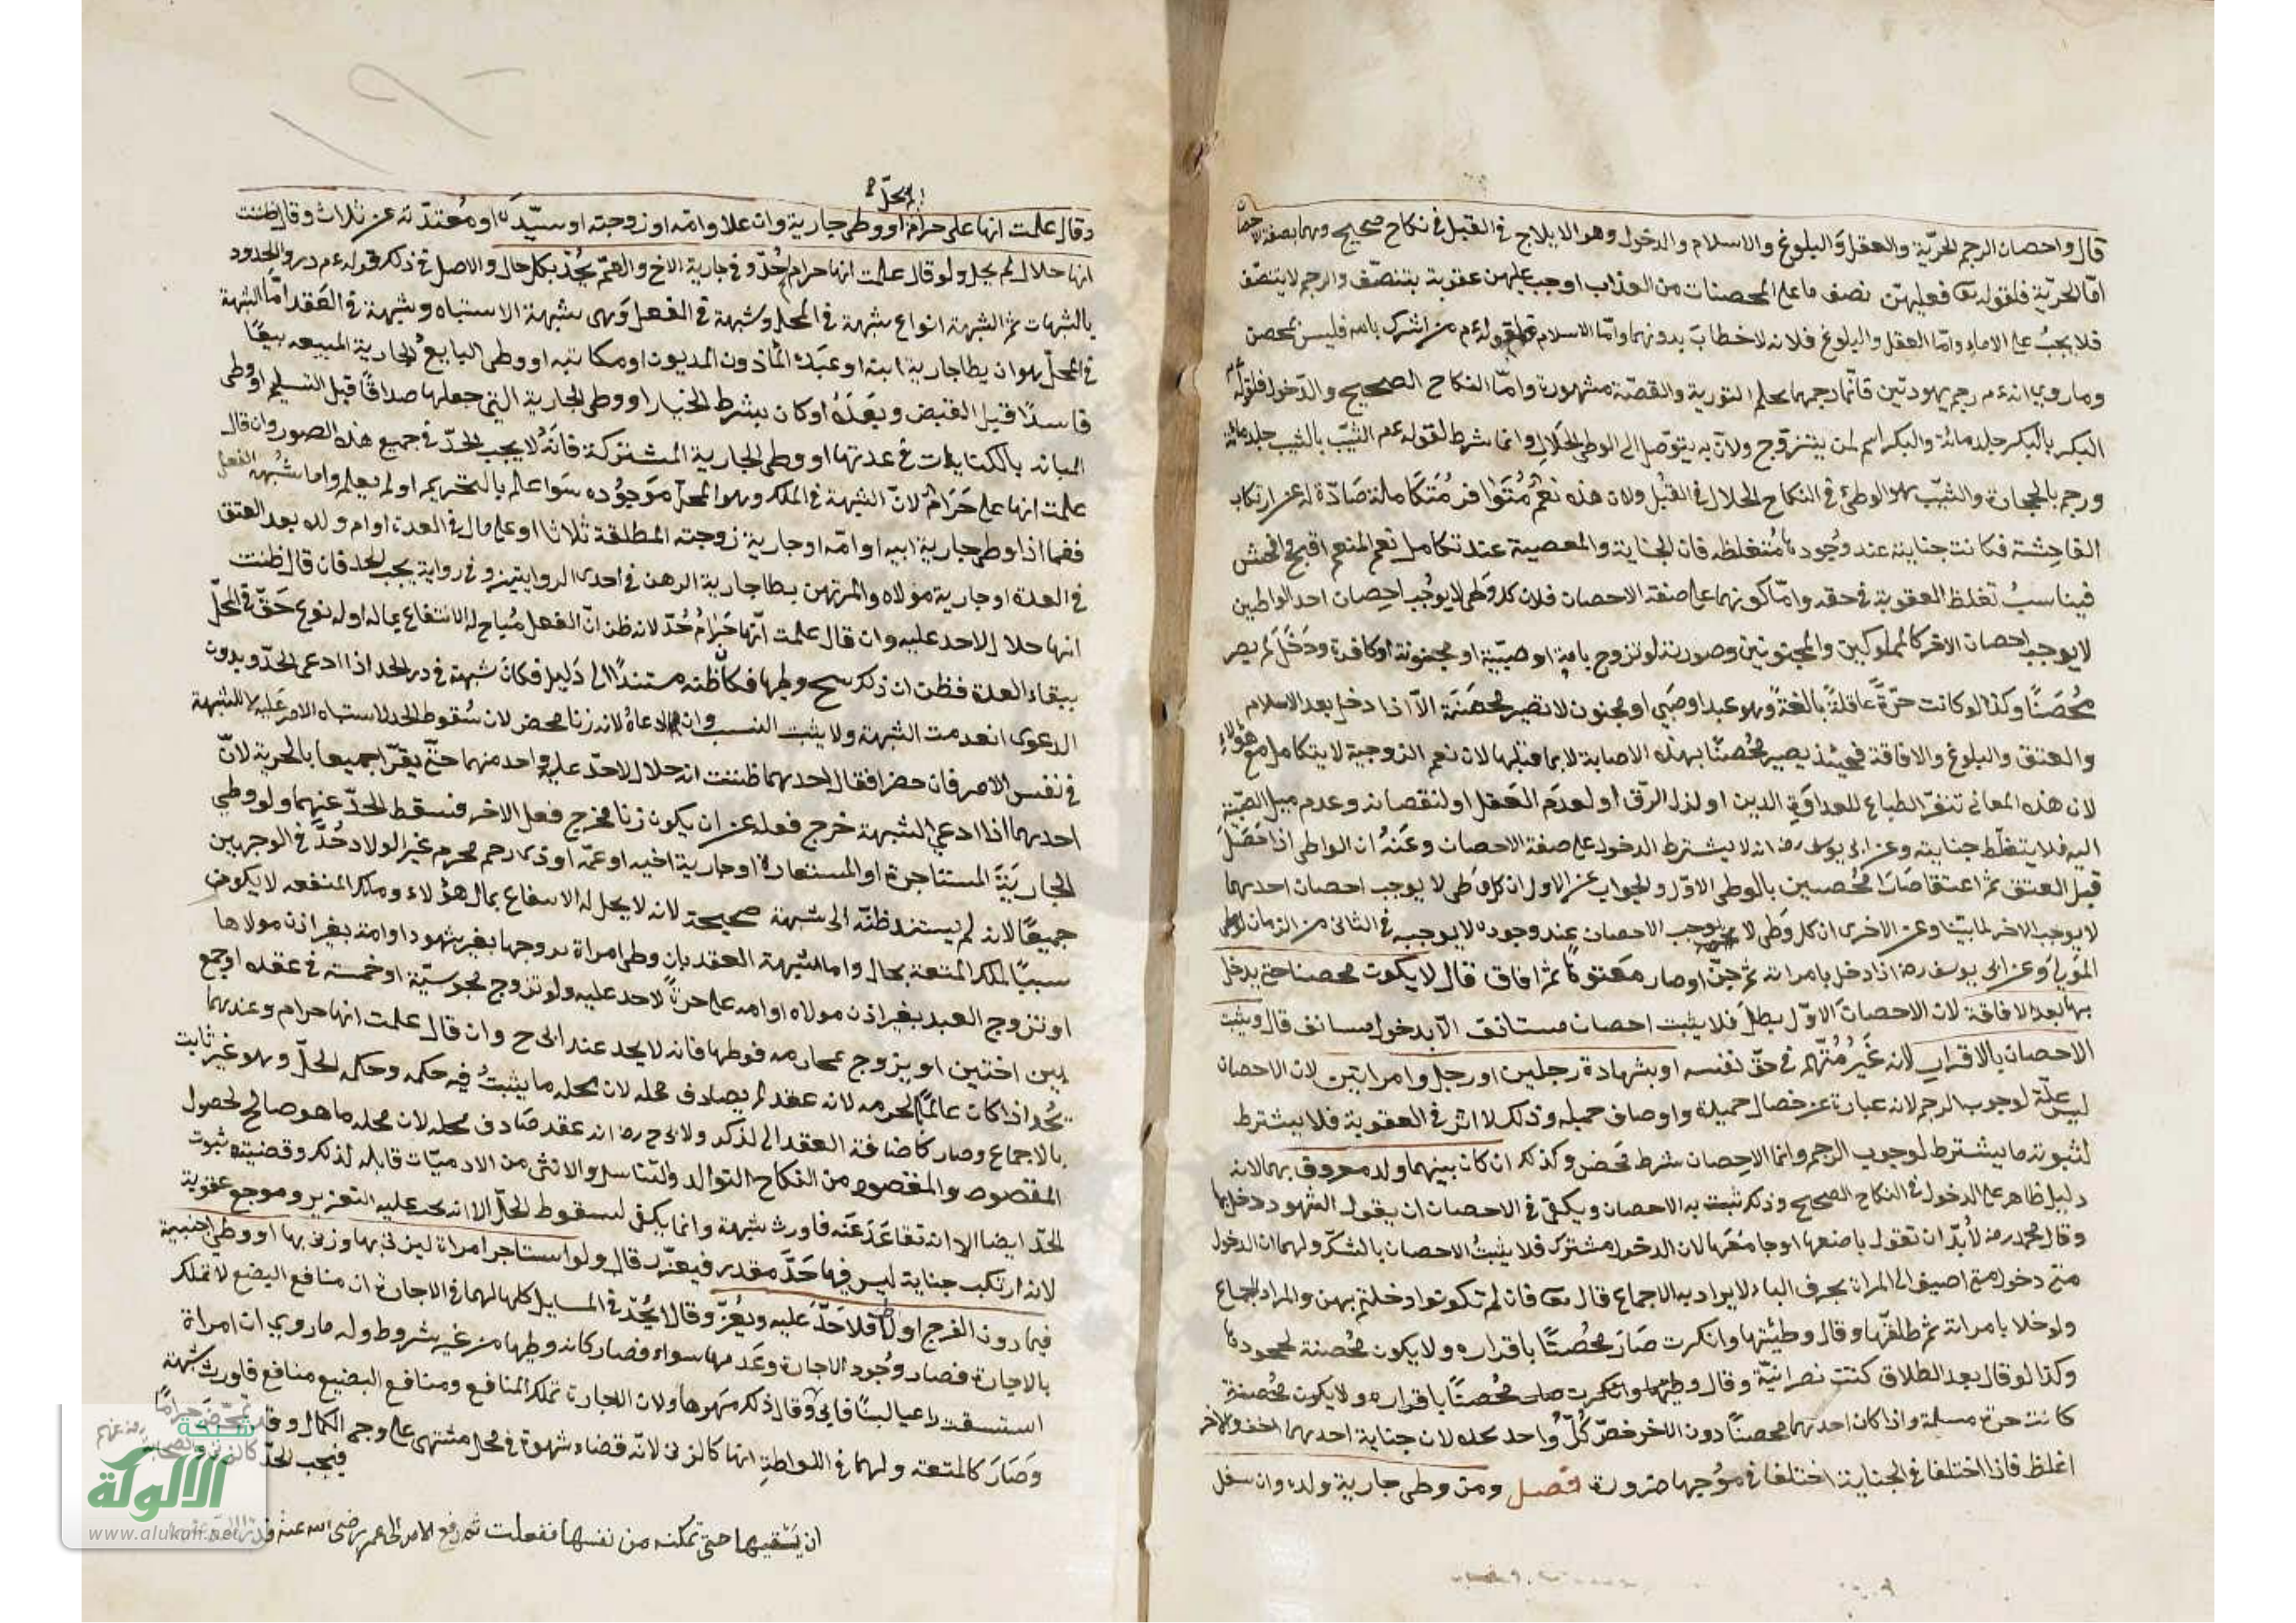 قال واحصان الرجم الحرّية والعقل والبلوغ والاسلام والدخول وهو الايلاج في القبل في نكاح صحيح وهما بصفة الاحصان
امّا الحرّية فلقوله تعا فعليهنّ نصف ما على المحصنات من العذاب اوجب عليهن عقوبة بتنصّف والرجم لا يتنصّف
فلا يجبُ على الاماء وامّا العقل والبلوغ فلانه لا خطابَ بدونهما وامّا الاسلام فلقوله ءم من اشرك بالله فليس بمحصن
وما روي انه ءم رجم يهوديّين فانّما رجمهما بحكم التورية والقصّة مشهورة وامّا النكاح الصحيح والدّخول فلقوله ءم
البكر بالبكر جلد مائة والبكر اسم لمن يتزوّج ولانّ به يتوصّل الى الوطى الحلال وانما شرط لقوله ءم الثيّب بالثيب جلد مائة
ورجم بالحجارة والثيّب هو الوطئ في النكاح الحلال في القُبُل ولان هذه نعمٌ مُتوافر مُتكاملة صادّة له عن ارتكاب
الفاحِشة فكانت جنايته عند وُجودها مُتغلظه فان الجناية والمعصية عند تكامل نعم المنعم اقبح وافحش
فيناسبُ تغلظ العقوبة في حقه وامّا كونهما على صفة الاحصان فلان كل وَطى لا يوُجب احصان احد الواطيين
لا يوجب احصان الاخر كالمملوكين والمجنونين وصورته لو تزوج بامة او صبيّية او مجنونة او كافرة ودَخَلَ لم يصر
مُحصَنًا وكذا لو كانت حرّةً عاقلةً بالغةً وهو عبد او صَبي او مجنون لا تصير محصَنَة الّا اذا دخل بعد الاسلام
والعتق والبلوغ والافاقة فحينئذ يصير مُحصنًا بهذه الاصابة لا بما قبلها لان نعم الزوجية لا يتكامل مع هؤلاءِ
لان هذه المعاني تنفّر الطباع للعداوَة الدين او لذل الرّق او لعدَم العَقل او لنقصانه وعدم ميل الصبيّة
اليه فلا يتغلّظ جنايته وعن ابي يوسف رضه انه لا يشترط الدخول على صفة الاحصان وعَنْهُ ان الواطى اذا حَصَلَ
قبل العتق ثم اعتقا صَارَا مُحصَنين بالوطى الاوّل والجواب عن الاول ان كل وَطى لا يوجب احصان احدهما
لا يوجب الاخر لما بيّنا وعن الاخرى ان كل وَطى لا يوجب الاحصان عند وجوده لا يوجبه في الثانى من الزمان
وعن ابى يوسف رضه اذا دخل بامراته ثم جنّ او صار مَعتوهًا ثم افاق قال لا يكون محصنا حتى يدخل
بها بعد الافاقة لان الاحصانَ الاوّل بطلَ فلا يثبت احصان مستانف الّا بدخول مستانف قال ويثبت
الاحصان بالاقرار لانه غَيرُ مُتّهم في حقّ نفسه او بشهادة رجلين او رجل وامراتين لان الاحصان
ليس علّة لوجوب الرجم لانه عبارة عن خصال حميدة واوصاف جميله وذلك لا اثر في العقوبة فلا يشترط
لثبوته ما يشترط لوجوب الرجم وانما الاحصان شرط محَض وكذلك ان كان بينهما ولد معروف بهما لانه
دليل ظاهر على الدخول في النكاح الصحيح وذلك ثبت به الاحصان ويكفى في الاحصان ان يقول الشهود دخل بها
وقال محمد رضه لا بُدّ ان تقول باضعها او جامَعَها لان الدخول مشترك فلا يثبتُ الاحصان بالشكّ ولهما ان الدخول
متى دخول متى اضيف الى المراة بحرف الباء لا يراد به الا جماع قال تعا فان لم تكونوا دخلتم بهن والمراد الجماع
ولو خلا بامراته ثم طلقها وقال وطيئتها وانكرت صَارَ محُصنًا باقراره ولا يكون مُحصنة لجحودها
وكذا لو قال بعد الطلاق كنتِ نصرانيّة وقال وطيها وانكرت صار مُحصنًا باقراره ولا يكون مُحصنة
كانت حرة مسلمة واذا كان احدهما محصنًا دون الاخر خصّ كلّ واحد بحده لان جناية احدهما اخف والاخر
اغلظ فاذا اختلفا في الجناية اختلفا في موُجبها ضرورة فصل ومن وطى جارية ولده وان سفل
المحلّ
وقال علمت انها على حرام او وطى جارية وان علا وامّه او زوجته او سيّده او مُعتدّته عن ثلاث وقال ظننت
انها حلال لم يحل ولو قال علمت انها حرام يُحدّ وفي جارية الاخ والعمّ يُحدّ بكل حال والاصل في ذلك قوله ءم درو الحدود
بالشبهات ثم الشبهة انواع شبهة في المحل وشبهة في الفعل وَهى شبهة الاشتباه وشبهة في العَقد امّا الشبهة
في المحلّ هو ان يطا جارية ابنه او عبَدَه المأذون المديون او مكاتبه او وطى البايع الجارية المبيعه بيعًا
فاسدًا قبل القبض وبعَدَهُ او كان بشرط الخيار او وطى الجارية التي جعلها صداقًا قبل التسليم او وطى
المبانه بالكنايات في عدتها او وطى الجارية المشتركة فانّهُ لا يجب الحدّ في جميع هذه الصور وان قال
علمت انها على حَرَامٌ لانّ الشبهة في الملك وهو المحلّ مَوجوُده سَوا علم بالتحريم او لم يعلم واما شُبهة الفعل
ففيما اذا وطى جارية ابيه او امّه او جارية زوجته المطلقة ثلاثا او على مال في العدة او ام ولده بعد العتق
في العدة او جارية مولاه والمرتهن يطا جارية الرهن في احدى الروايتين وفي رواية يجب الحد فان قال ظننت
انها حلال لاحد عليه وان قال علمت انّها حَرامٌ حُدّ لانه ظن انّ الفعل مُباح له الانتفاع بماله اوله نوع حَقّ في المحلّ
ببقاء العدة فظن ان ذلك يبيح وطيها فكان ظنه مستندًا الى دَليل فكانَ شبهة في درء الحد اذا ادعى الحدّ وبدون
الدعوى انعدمت الشبهة ولا يثبت النسب وان ادعاهُ لانه زنا محض لان سُقوط الحد لاشتباه الامر عَليه لا للشبهة
في نفس الامر فان حضرا فقال احدهما ظننت انه حلال لاحدّ عليه واحد منهما حتّى يقرّا جميعا بالحرمة لانّ
احدهما اذا ادعى الشبهة خرج فعله عن ان يكون زنا فخرج فعل الاخر فسقط الحدّ عنهما ولو وطى
الجاريَةَ المستاجرة او المستعارة او جارية اخيه او عمّه او ذى رحم محرم غير الولاد حُدَّ في الوجهين
جميعًا لانه لم يستند ظنّه الى شبهة صحيحة لانه لا يحل له الانتفاع بمال هؤلاء وملك المنفعه لا يكون
سببًا لملك المتعة بحال واما شبهة العقد بان وطى امراة تزوجها بغير شهود او امة بغير اذن مولاها
او تزوج العبد بغير اذن مولاه او امه على حرةً لاحد عليه ولو تزوج مجوسيّة او خمسة في عقده او جمع
بين اختين او يزوج بمحارمه فوطها فانه لا يحد عند ابى ح وان قال علمت انها حرام وعندهما
يُحد اذا كان عالمًا بالحرمه لانه عقد لم يصادف محله لان محله ما يثبتُ فيه حكمه وحكمه الحلّ وهو غير ثابت
بالاجماع وصار كاضافة العقد الى لذكر ولابى ح رضه انه عقد صَادف محله لان محله ما هو صالح لحصول
المقصود والمقصود من النكاح التوالد والتناسل والانثى من الادميّات قابله لذلك وقضيته ثبوت
الحلّ ايضا الا انه تقاعَدَ عَنه فاورث شبهة وانما يكفى لسقوط الحلّ الا انه يجب عليه التعزير وموجع عقوبة
لانه ارتكب جناية ليس فيها حَدَّ مقدر فيعزّر قال ولو استاجر امراة ليزنى بها وزنى بها او وطى اجنبية
فيما دون الفرج او لاط فلا حَدّ عليه ويعُزّر وقالا يُحُدّ في المسايل كلها لهما في الاجارة ان منافع البضع لا تملك
بالاجارة فصار وجُود الاجارة وعَدمها سواء فصار كانه وطيها من غير شروط وله ما روي ان امراة
استسقت راعيا لبنًا فابى وقال ذلك مَهرها ولان الاجارة تملك المنافع ومنافع البضع منافع فاورث شبهة
وَصَارَ كالمتعه ولهما في اللواطة انها كالزنى لانّه قضاء شهوة في محل مشتهى على وجه الكمال وقد تمحّض حرامًا
فيجب الحدّ كالزنى
ان يَسْقيها حتى تمكنه من نفسها ففعلت ثم رفع الامر الى عمر رضى الله عنه
شبكة
الألوكة
www.alukah.net